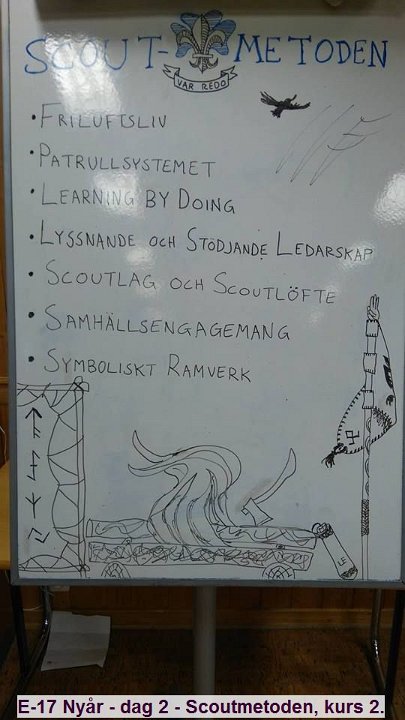 SCOUT-METODEN
VAR REDO
• FRILUFTSLIV
• PATRULLSYSTEMET
• LEARNING BY DOING
• LYSSNANDE OCH STÖDJANDE LEDARSKAP
• SCOUTLAG OCH SCOUTLÖFTE
• SAMHÄLLSENGAGEMANG
• SYMBOLISKT RAMVERK
E-17 Nyår - dag 2 - Scoutmetoden, kurs 2.